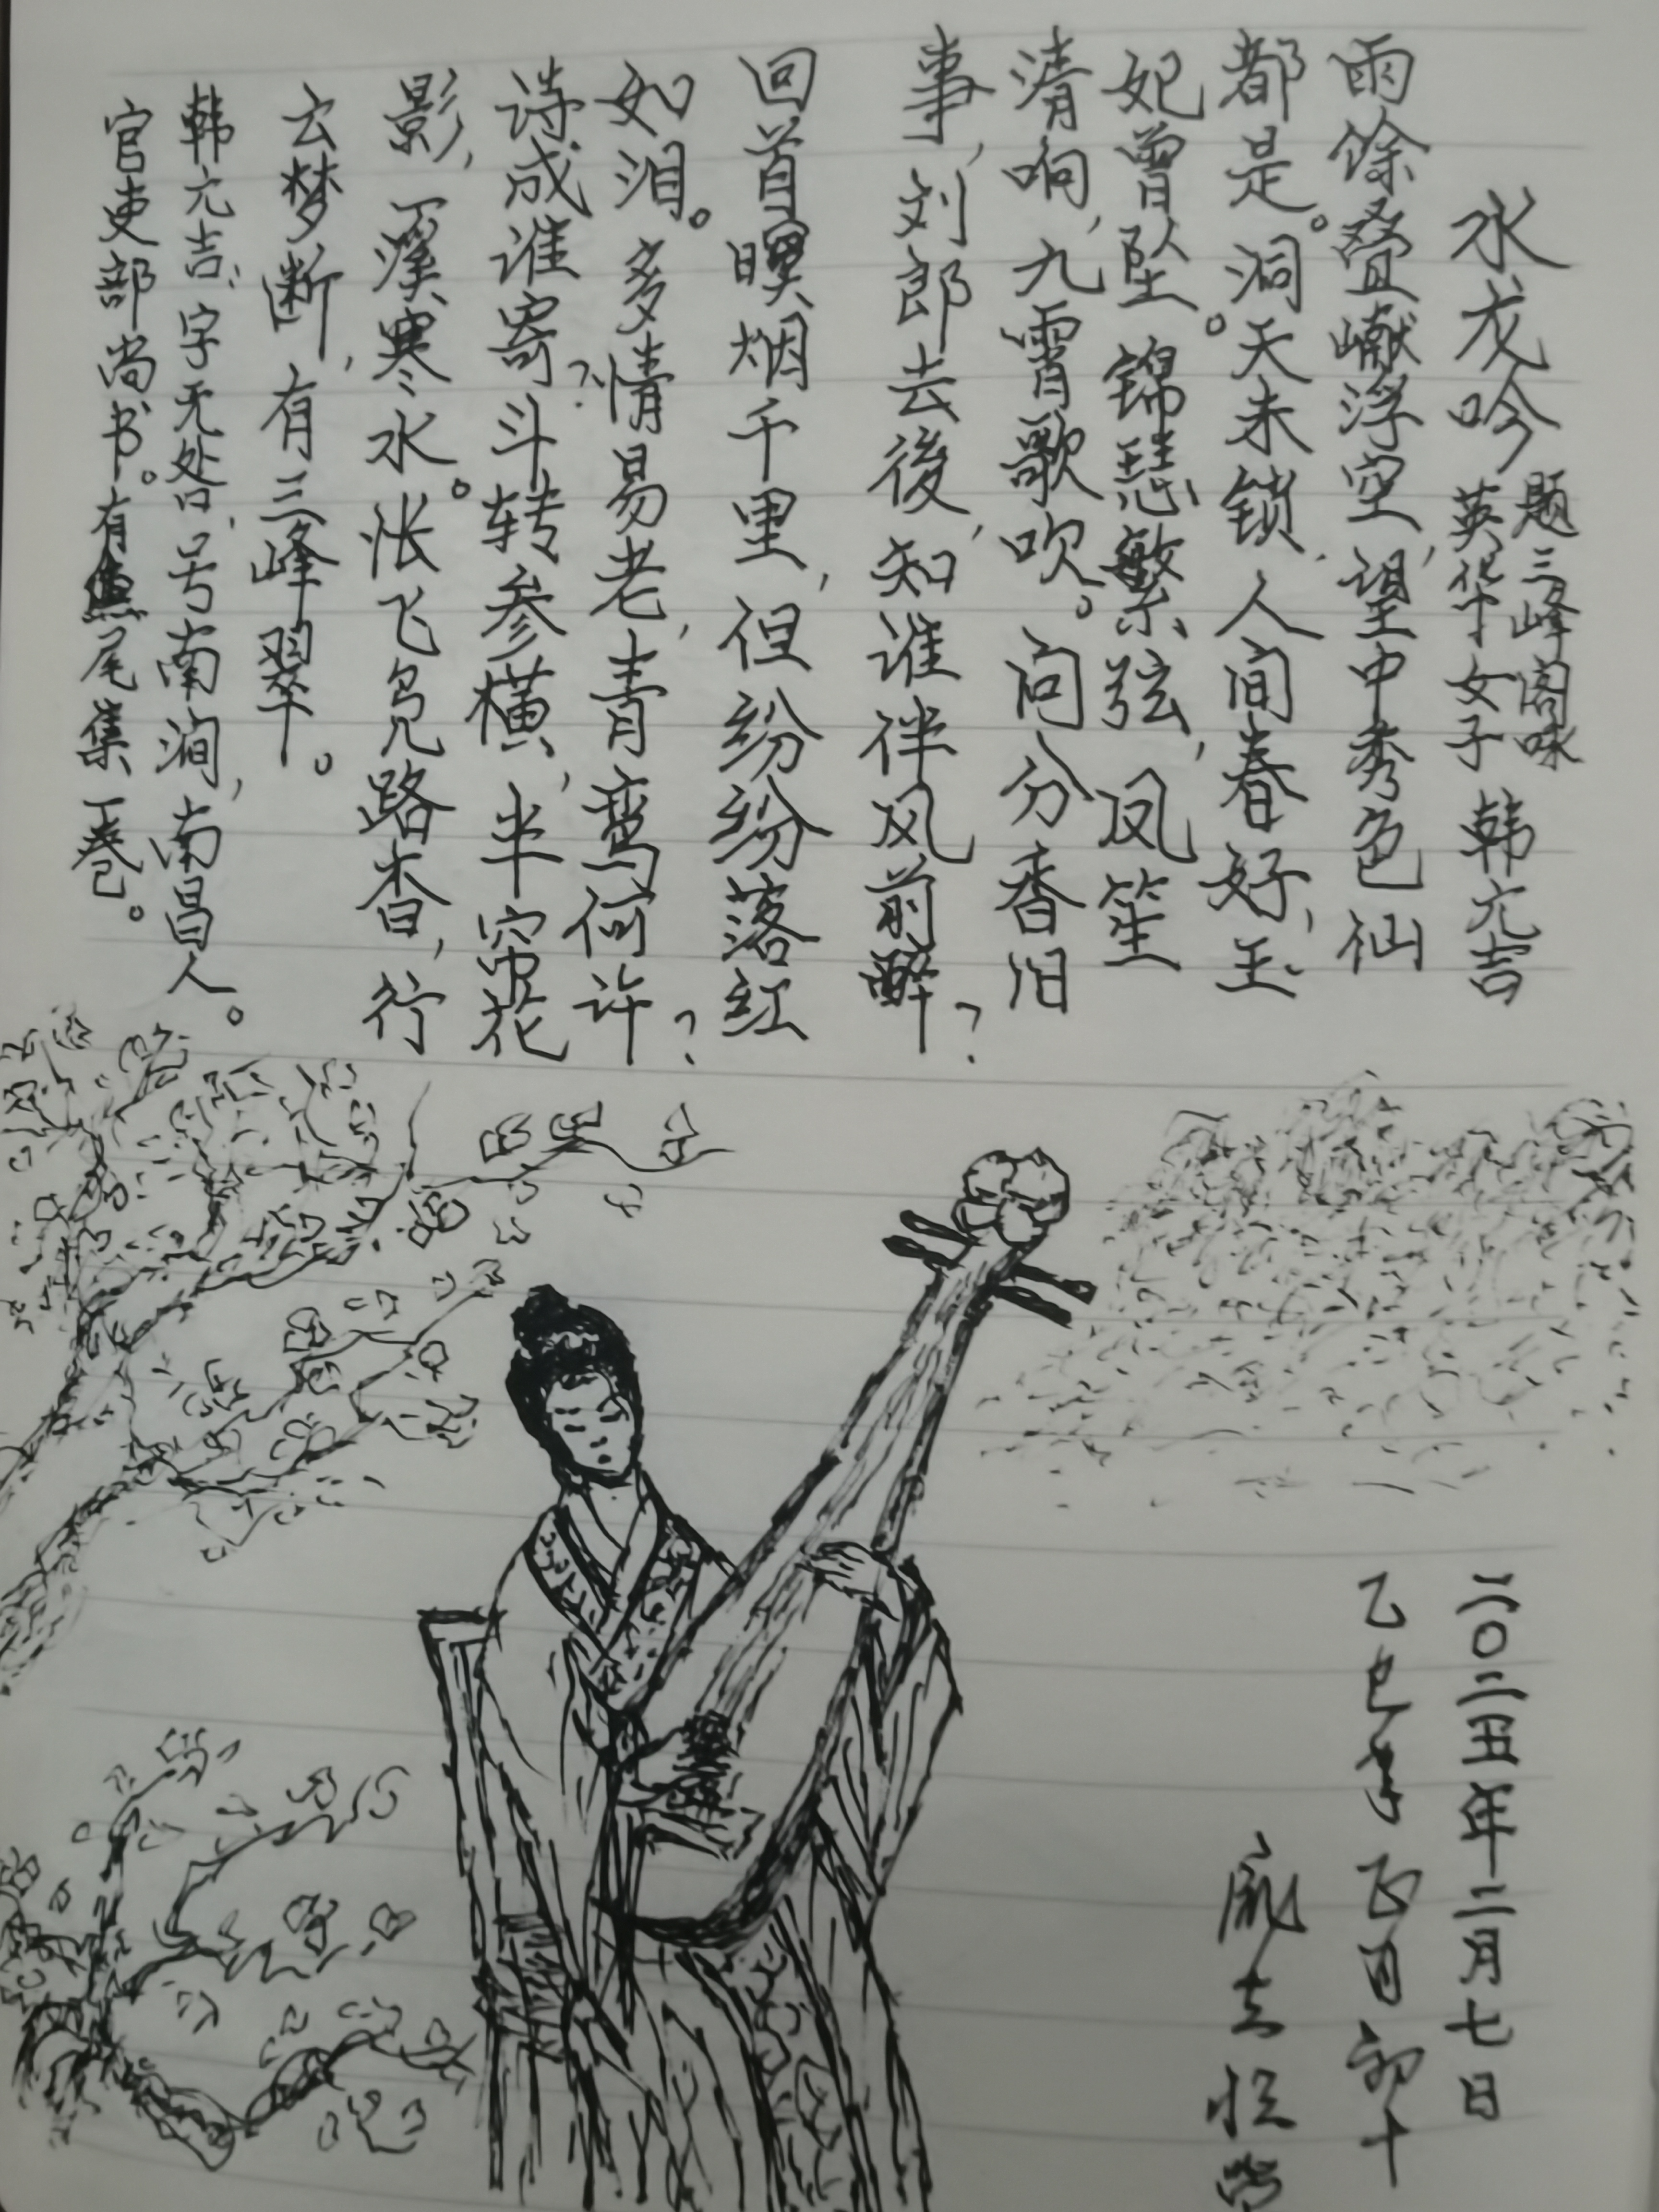 水龙吟 题三峰阁咏英华女子 韩元吉
雨馀叠巘浮空，望中秀色仙
都是。洞天未锁，人间春好，玉
妃曾坠。锦瑟繁弦，凤笙
清响，九霄歌吹。问分香旧
事，刘郎去後，知谁伴风前醉？
回首暝烟千里，但纷纷落红
如泪。多情易老，青鸾何许？
诗成谁寄？斗转参横，半帘花
影，一溪寒水。怅飞凫路杳，行
云梦断，有三峰翠。
韩元吉，字无咎，号南涧，南昌人。
官吏部尚书。有焦尾集一卷。
二〇二五年二月七日
乙巳年正月初十